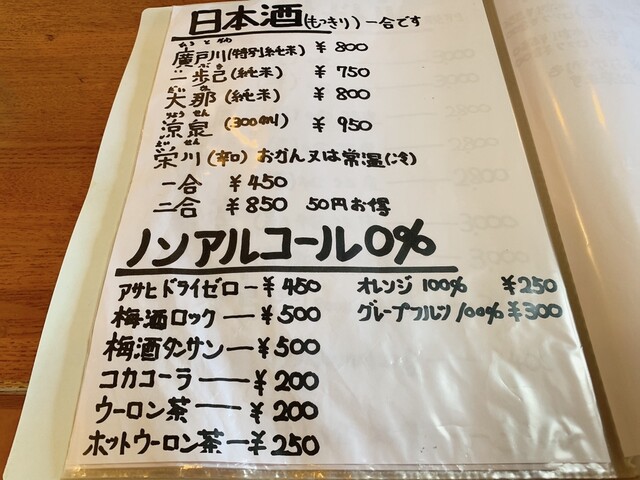 日本酒(もっきり)一合です
廣戸川(特別純米) ¥800
一歩己(純米) ¥750
大那(純米) ¥800
涼泉(300ml) ¥950
栄川(辛口)おかん又は常温(冷)
一合 ¥450
二合 ¥850 50円お得
ノンアルコール0%
アサヒドライゼロー¥450 オレンジ100% ¥250
梅酒ロックー¥500 グレープフルーツ100% ¥300
梅酒タンサンー¥500
コカコーラー¥200
ウーロン茶ー¥200
ホットウーロン茶ー¥250